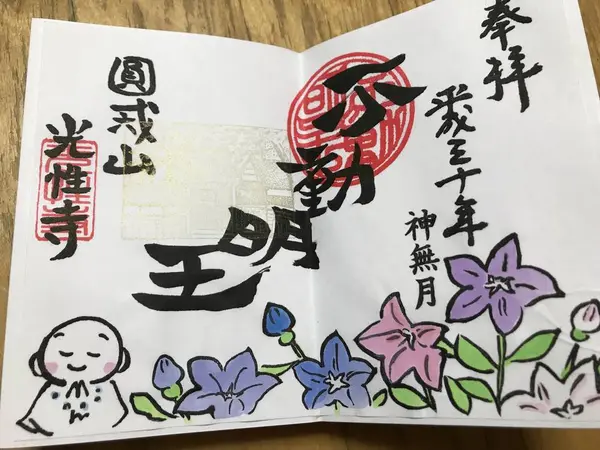 奉拝
平成三十年
神無月
不動
明
王
圓戒山
光性寺